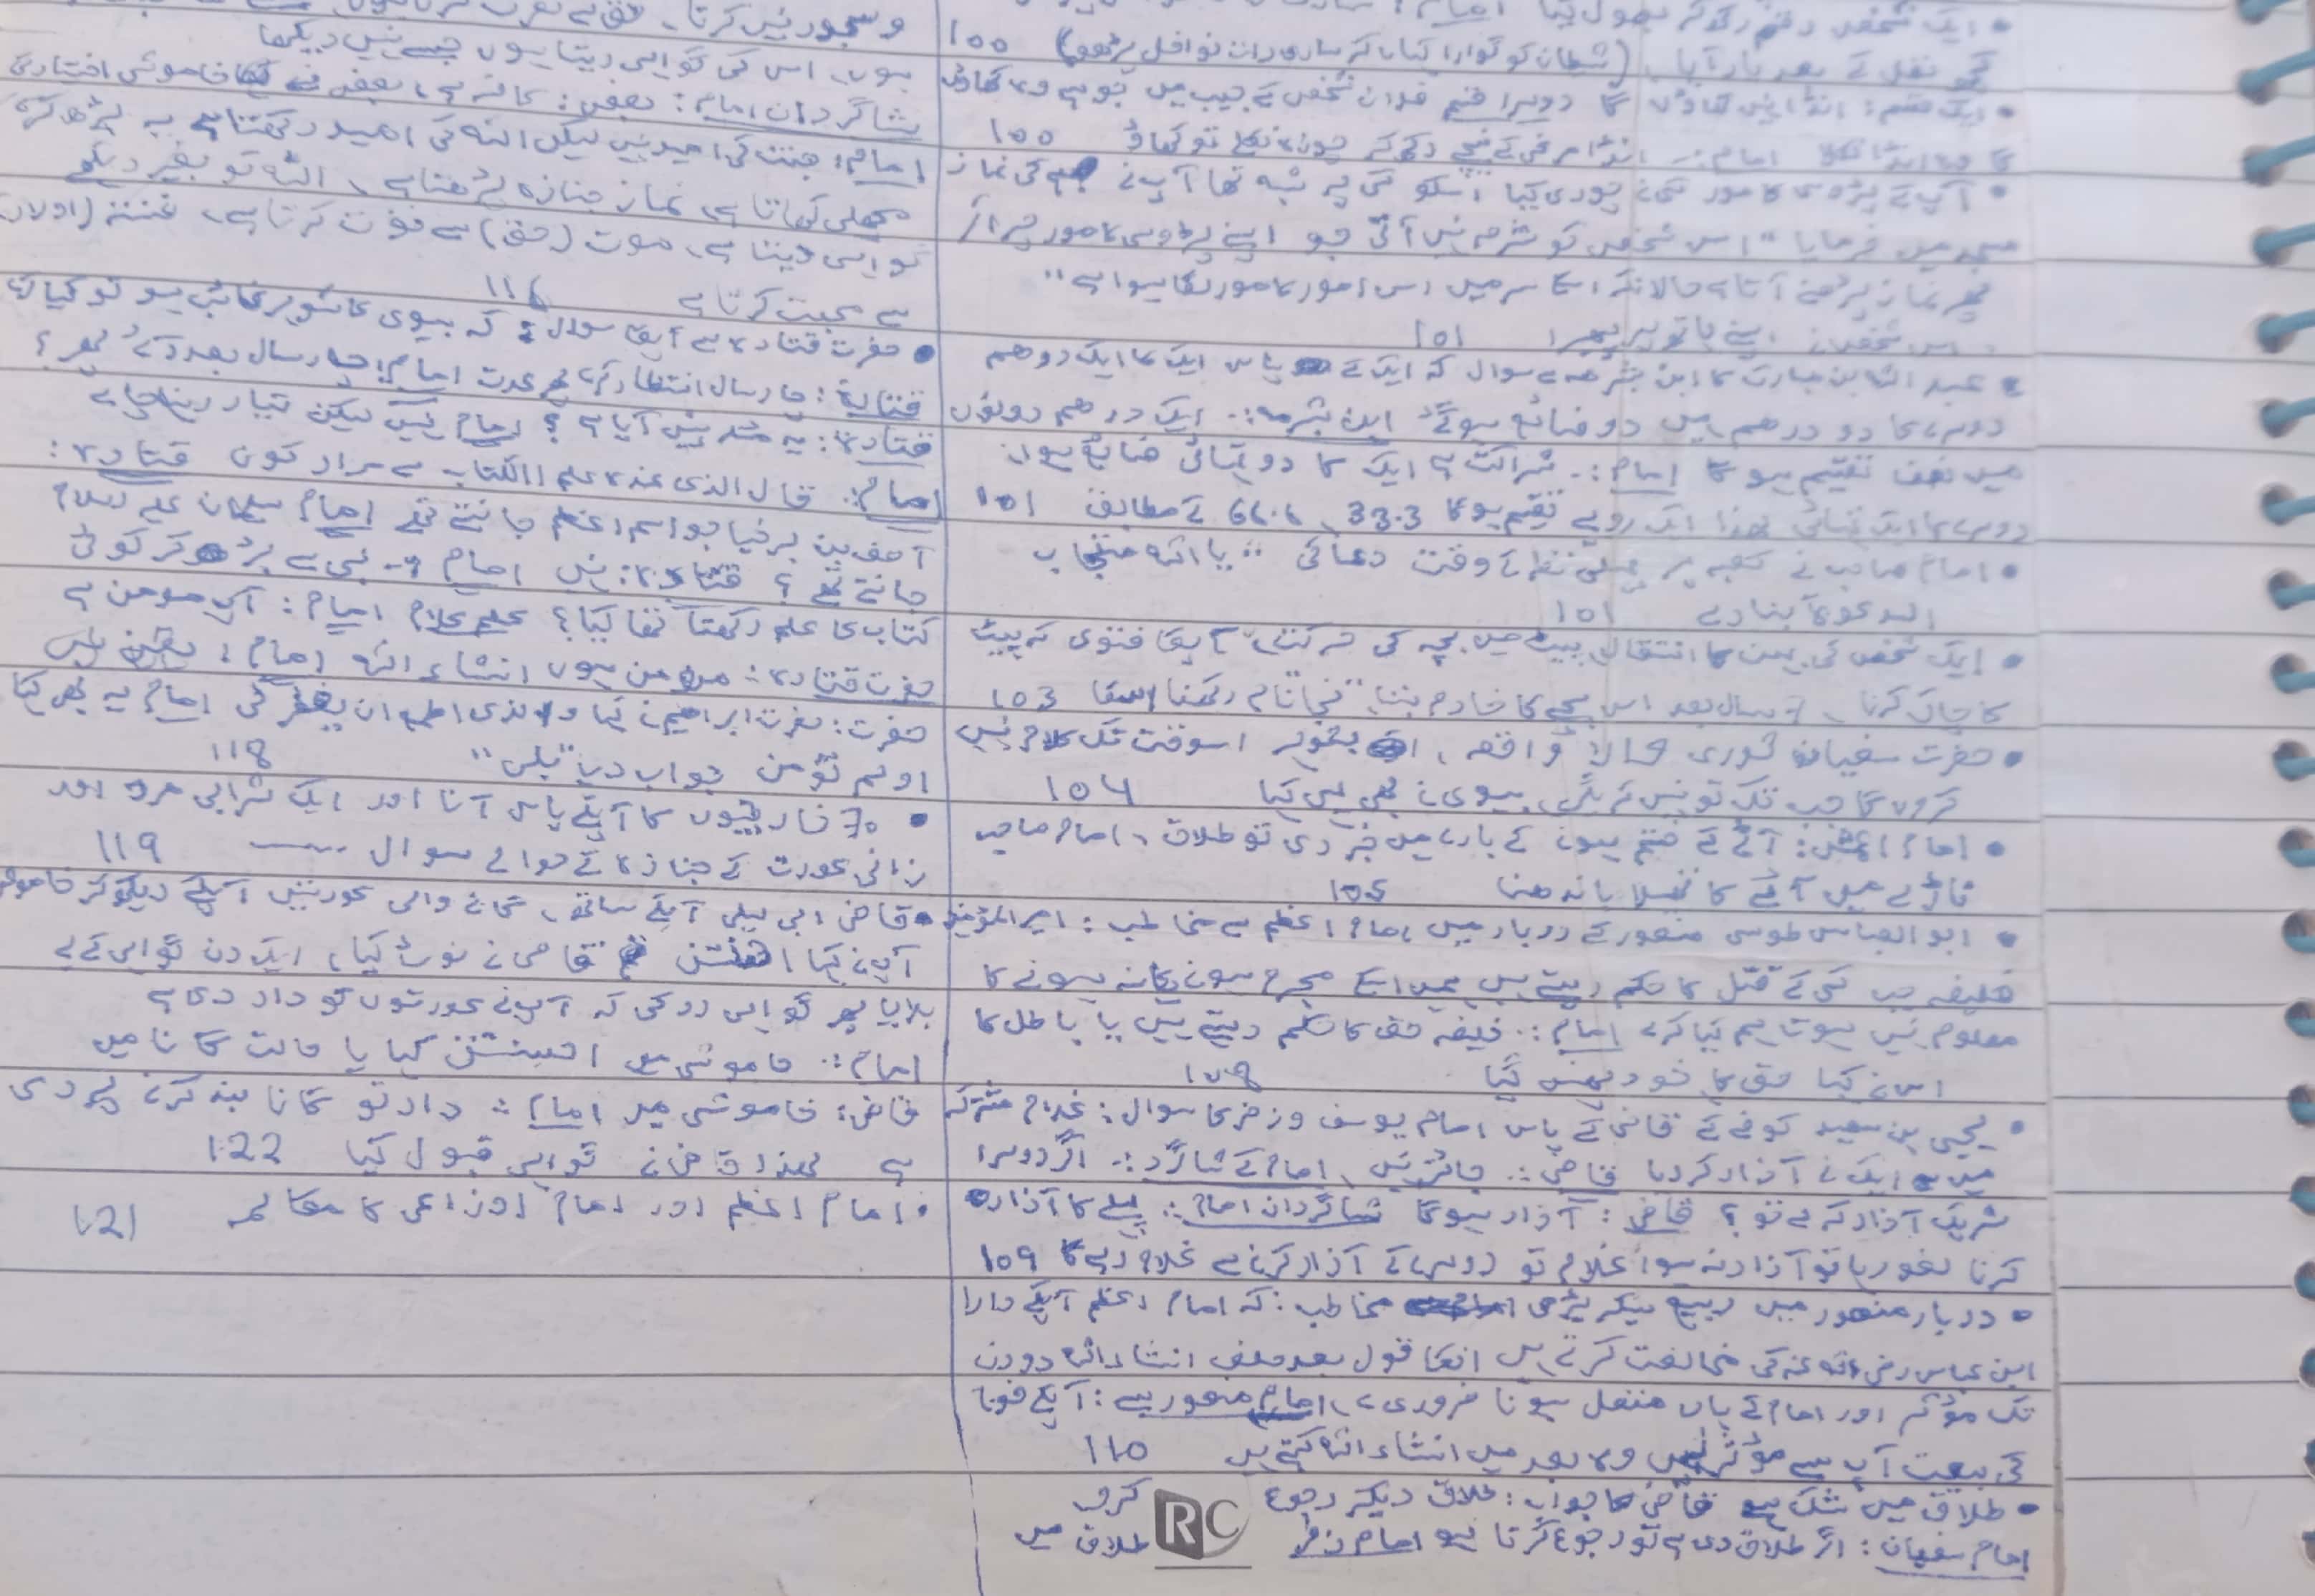 گم نقل کے بعد یاد آیا۔ (شیطان کو گوارا کہاں کہ ساری رات نوافل پڑھو) 100
دوسرا قسم فلاں شخص کے جیب میں جو ہے وہ کھاؤں
امام: انڈا مرغی کے نیچے رکھ کر چوزہ نکلے تو کھاؤ 100
• آپ کے پڑوسی کا مور کسی نے چوری کیا اسکو کسی پہ شبہ تھا آپ نے کی نماز
مسجد میں فرمایا "اس شخص کو شرم نہیں آتی جو اپنے پڑوسی کا مور چرا کر
پھر نماز پڑھنے آتا ہے حالانکہ اسکے سر میں اس مور کا پر لگا ہوا ہے"
اس شخص نے اپنے ہاتھ پھیرا 101
• عبد اللہ بن مبارک کا ابن شبرمہ سے سوال کہ ایک کے پاس ایک کا ایک درھم
دوسرے کا دو درھم، میں دو ضائع ہو گئے ابن شبرمہ:۔ ایک درھم دونوں
میں نصف تقسیم ہو گا امام:۔ شراکت ہے ایک کا دو تہائی ضائع ہوا
دوسرے کا ایک تہائی لھذا ایک روپے تقسیم ہو گا 33.3، 66.6 کے مطابق 101
• امام صاحب نے کعبہ پر پہلی نظر کے وقت دعا کی "یا اللہ مستجاب
الدعوۃ بنا دے 101
• ایک شخص کی بہن کا انتقال، پیٹ میں بچہ کی حرکت، آپکا فتوی کہ پیٹ
کا چاک کرنا، 7 سال بعد اس بچے کا خادم بننا، نام رکھنا اسکا 103
• حضرت سفیان ثوری والا واقعہ، شوہر اسوقت تک کلام نہیں
کروں گا جب تک تو نہیں کریگی، بیوی نے بھی یہی کہا 104
• امام اعمش: آٹے کے ختم ہونے کے بارے میں خبر دی تو طلاق، امام صاحب
میں آٹے کا تھیلا باندھنا 105
• ابو العباس طوسی منصور کے دربار میں امام اعظم سے مخاطب: امیر المؤمنین
خلیفہ جب کسی کے قتل کا حکم دیتے ہیں ہمیں اسکے مجرم ہونے یا نہ ہونے کا
معلوم نہیں ہوتا ہم کیا کرے امام:۔ خلیفہ حق کا حکم دیتے ہیں یا باطل کا
اس نے کہا حق کا خود پھنس گیا 108
• یحیی بن سعید کوفے کے قاضی کے پاس امام یوسف و زفر کا سوال: غلام مشترکہ
میں سے ایک نے آزاد کر دیا قاضی:۔ جائز نہیں، امام کے شاگرد:۔ اگر دوسرا
شریک آزاد کر دے تو؟ قاضی: آزاد ہو گا شاگردان امام:۔ پہلے کا آزاد
کرنا لغو رہا تو آزاد نہ ہوا غلام تو دوسرے کے آزاد کرنے سے غلام رہے گا 109
• دربار منصور میں ربیع مخاطب: کہ امام اعظم آپکے دادا
ابن عباس رضی اللہ عنہ کی مخالفت کرتے ہیں انکا قول بعد حلف انشاء اللہ دو دن
تک مؤثر اور امام کے ہاں متصل ہونا ضروری ہے، امام منصور سے: آپکے فوج
کی بیعت آپ سے مؤثر نہیں وہ بعد میں انشاء اللہ کہتے ہیں 110
• طلاق میں شک ہے قاضی کا جواب: طلاق دیکر رجوع کرو
امام سفیان: اگر طلاق دی ہے تو رجوع کرتا ہو امام زفر طلاق میں
ہوں، اس کی گواہی دیتا ہوں جسے نہیں دیکھا
شاگردان امام: بعض: کافر ہے، بعض نے خاموشی اختیار کی
امام: جنت کی امید نہیں لیکن اللہ کی امید رکھتا ہے
مچھلی کھاتا ہے، نماز جنازہ پڑھتا ہے، اللہ کو بغیر دیکھے
گواہی دیتا ہے، موت (حق) سے نفرت کرتا ہے، فتنہ (اولاد)
سے محبت کرتا ہے 116
• حضرت قتادہ سے آپکا سوال: کہ بیوی کا شوہر غائب ہو تو کیا
قتادہ: چار سال انتظار کرے پھر عدت امام: چار سال بعد آئے پھر؟
قتادہ: یہ مسئلہ پیش آیا ہے؟ امام نہیں لیکن تیار رہنا چاہئے
امام: قال الذی عندہ علم الکتاب سے مراد کون قتادہ:
آصف بن برخیا جو اسم اعظم جانتے تھے امام سلیمان علیہ السلام
جانتے تھے؟ قتادہ: نہیں امام:۔ نبی سے بڑھ کر کوئی
کتاب کا علم رکھتا تھا کیا؟ امام: آپ مومن ہے
حضرت قتادہ: مومن ہوں انشاء اللہ امام: یقین نہیں
حضرت: حضرت ابراھیم نے کہا والذی اطمع ان یغفرلی امام یہ بھی کہا
اولم تؤمن جواب دیا "بلی" 118
• 70 خارجیوں کا آپکے پاس آنا اور ایک شرابی مرد اور
زانی عورت کے جنازہ کے حوالے سوال ----- 119
• قاضی ابی لیلی آپکے ساتھ، گانے والی عورتیں آپکے دیکھ کر خاموش
آپ نے کہا احسنتن قاضی نے نوٹ کیا، ایک دن گواہی کے لے
بلایا پھر گواہی رد کی کہ آپ نے عورتوں کو داد دی ہے
امام:۔ خاموشی میں احسنتن کہا یا حالت گانا میں
قاضی: خاموشی میں امام:۔ داد تو گانا بند کرنے پر دی
ہے لھذا قاضی نے گواہی قبول کیا 122
• امام اعظم اور امام اوزاعی کا مکالمہ 121
RC